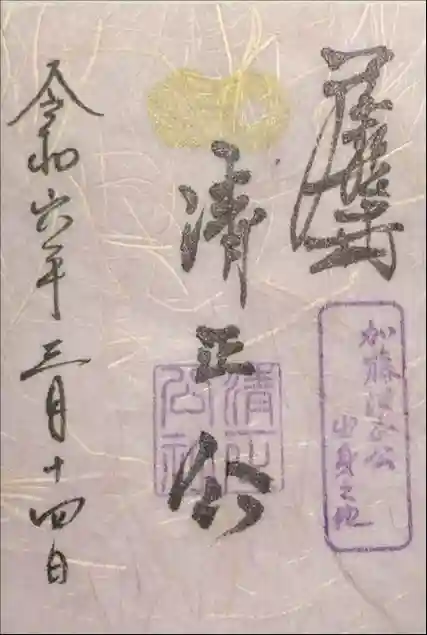 加藤清正公
出身之地
清正公
清正
公社
令和六年三月十四日